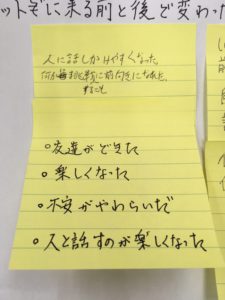 ットぞに来る前と後で変わった
人に話しかけやすくなった
何か挑戦に前向きになれた。
すること
○友達ができた
○楽しくなった
○不安がやわらいだ
○人と話すのが楽しくなった